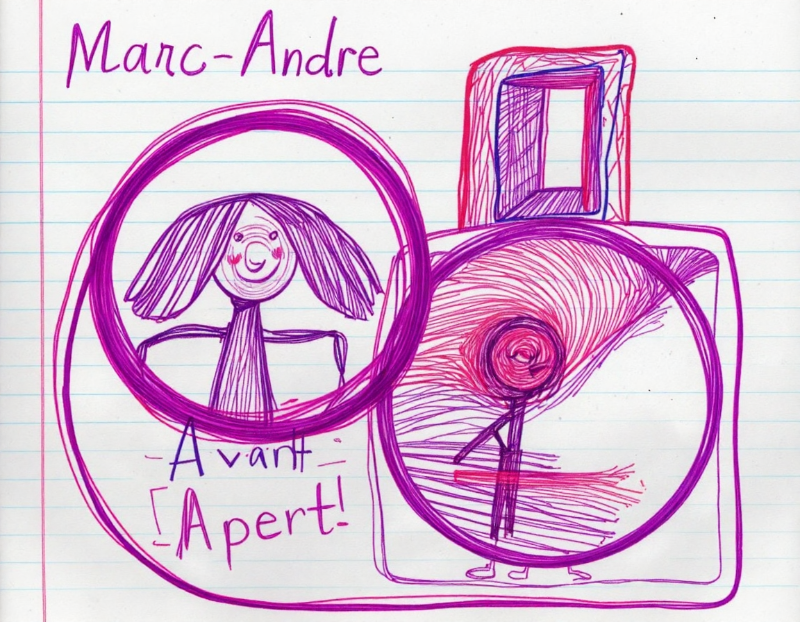 Marc-Andre
- Avant -
[Apert!